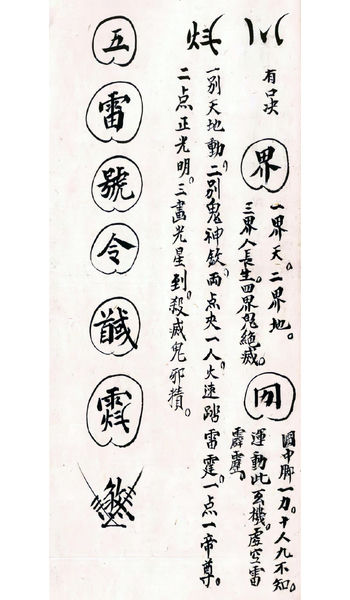 有口决
界
一界天。二界地。
三界人長生。四界鬼絕滅。
中脚一刀。十人九不知。
運動此玄機。虛空雷
霹靂。
一別天地動。二別鬼神欽。両点夾一人。火速踏雷霆。一点一帝尊。
二点正光明。三畫光星到。殺滅鬼邪精。
五雷號令馘